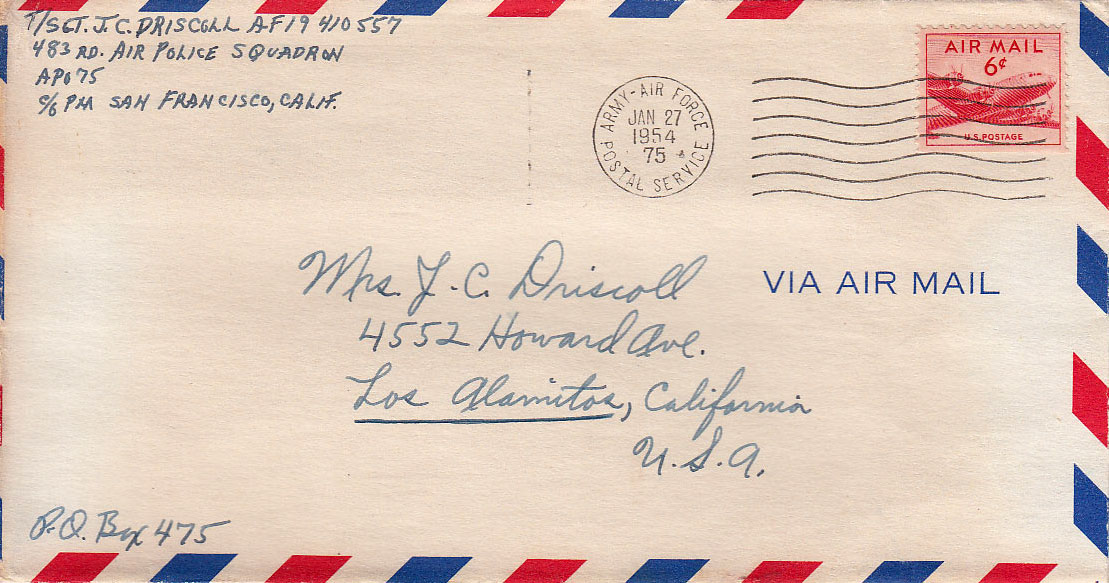 T/SGT. J. C. DRISCOLL AF19 410 557
483 RD. AIR POLICE SQUADRON
APO 75
c/o PM SAN FRANCISCO, CALIF.
ARMY-AIR FORCE
JAN 27
1954
75
POSTAL SERVICE
AIR MAIL
6¢
U.S. POSTAGE
Mrs. J. C. Driscoll
4552 Howard Ave.
Los Alamitos, California
U.S.A.
VIA AIR MAIL
P.O. Box 475